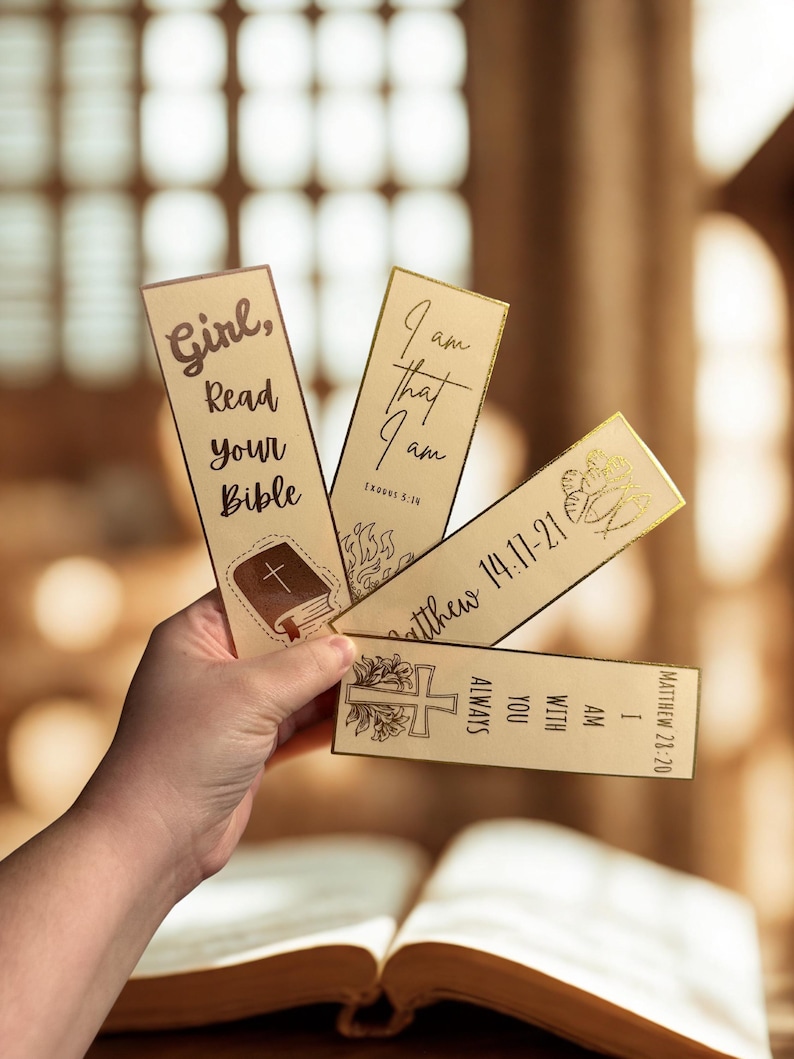 Girl,
Read
your
Bible
I am
that
I am
EXODUS 3:14
Matthew 14:17-21
MATTHEW 28:20
I
AM
WITH
YOU
ALWAYS